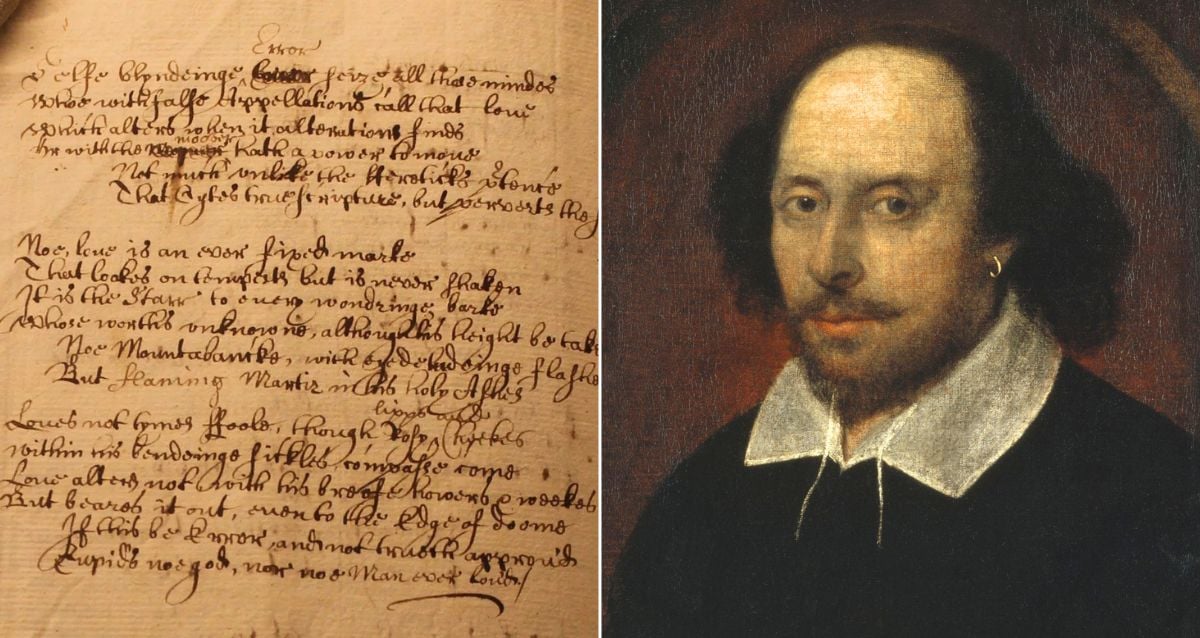 Error
Selfe blyndeinge seize all those mindes
Whoe with false Appellations call that love
Which alters when it alterations finds
moover
Or with the hath a power to move
Not much unlike the Hereticks p̃tence
That Cytes true scripture, but perverts the
Noe, love is an ever fixed marke
That lookes on tempests but is never shaken
It is the Starr to every wondringe barke
Whose worths unknowne, although his height be take
Noe Mountabancke, with eyedeludeinge flashe
But flaming Martir in his holy Ashes
lipps and
Loves not tymes ffoole, though Rosy Cheekes
within his bendeinge sickles compasse come
Love alters not with his breefe howers & weekes
But beares it out, even to the Edge of doome
If this be Error and not truth approv'd
Cupids noe god, nor noe Man ever lov'd